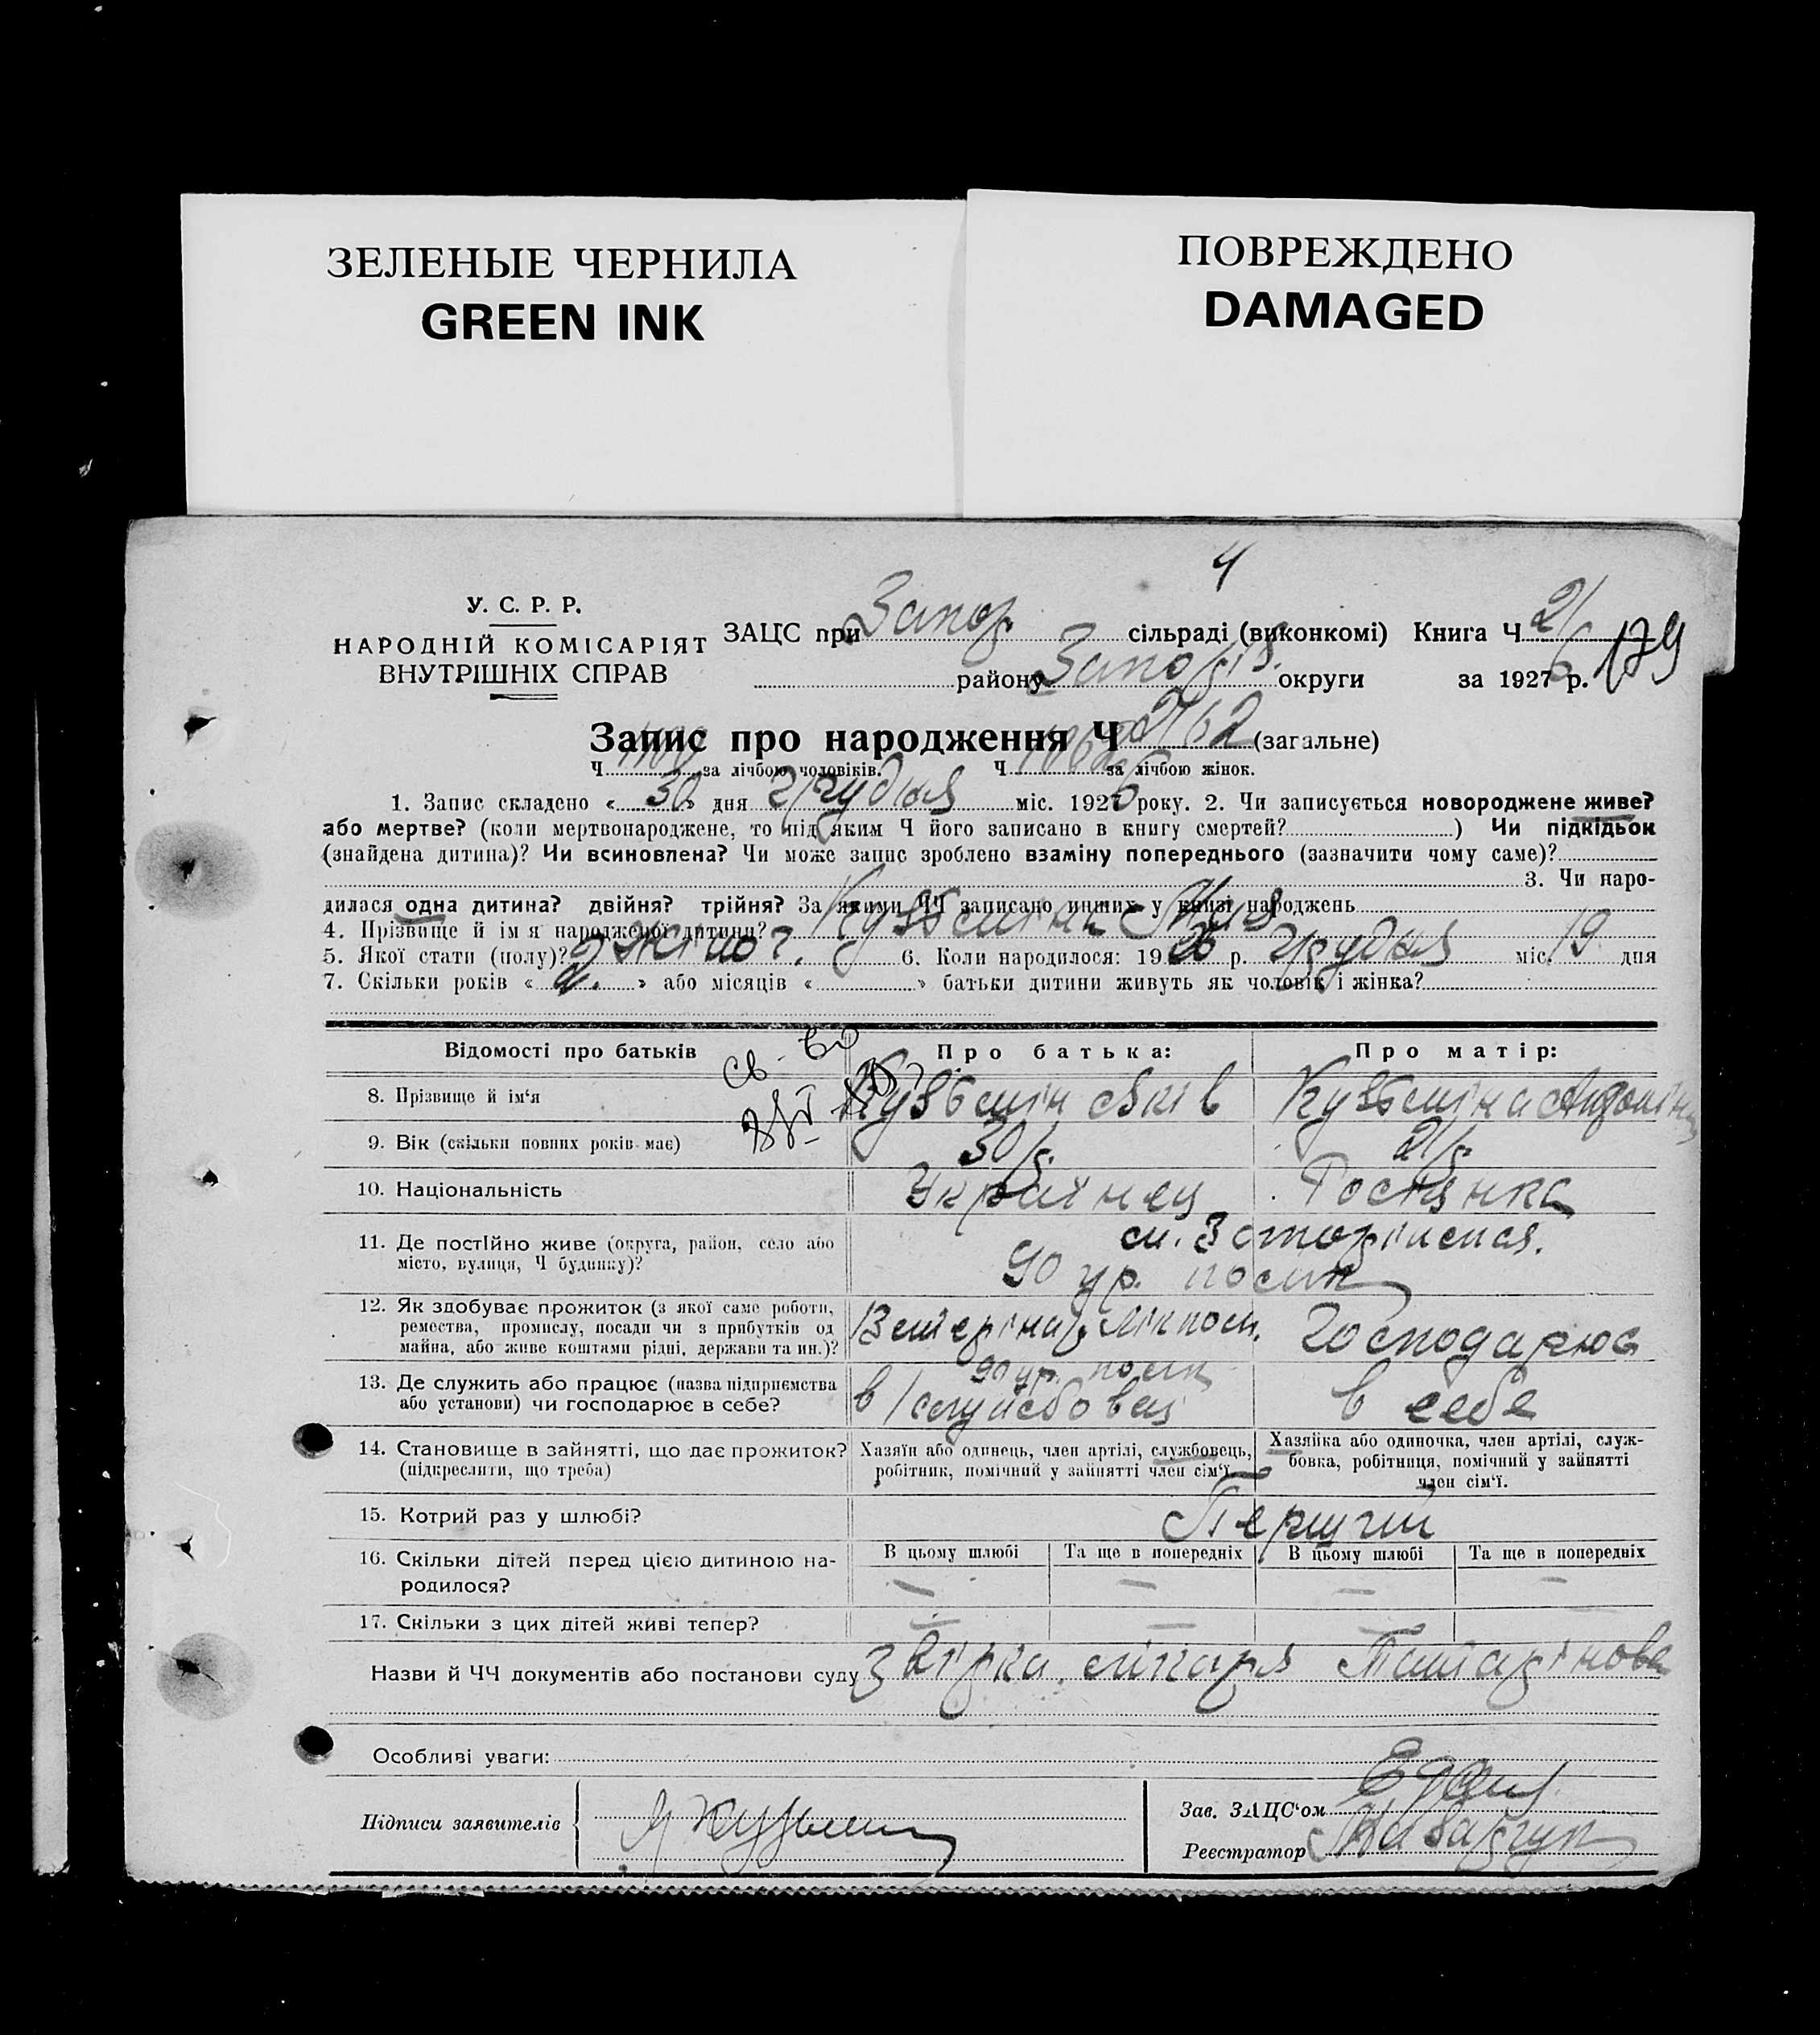 ЗЕЛЕНЫЕ ЧЕРНИЛА
GREEN INK
ПОВРЕЖДЕНО
DAMAGED
4
У. С. Р. Р.
НАРОДНІЙ КОМІСАРІЯТ
ВНУТРІШНІХ СПРАВ
ЗАЦС при Запор. сільраді (виконкомі) Книга Ч 21
району Запоріз. округи за 1927 6 р. 179
Запис про народження Ч 2162 (загальне)
Ч 1100 за лічбою чоловіків. Ч 1062 за лічбою жінок.
1. Запис складено « 30 » дня Грудня міс. 1926 року. 2. Чи записується новороджене живе?
або мертве? (коли мертвонароджене, то під яким Ч його записано в книгу смертей? ) Чи підкідьок
(знайдена дитина)? Чи всиновлена? Чи може запис зроблено взаміну попереднього (зазначити чому саме)?
3. Чи наро-
дилася одна дитина? двійня? трійня? За якими ЧЧ записано инших у книзі народжень
4. Прізвище й ім'я народженої дитини? Кузьмін
5. Якої стати (полу)? жіноч. 6. Коли народилося: 1926 р. Грудня міс. 19 дня
7. Скільки років « 2. » або місяців « » батьки дитини живуть як чоловік і жінка?
Відомості про батьків Про батька: Про матір:
8. Прізвище й ім'я Кузьмін Яків Кузьміна Антоніна
9. Вік (скільки повних років має) 30 р. 21 р.
10. Національність Українец Росіянка
11. Де постійно живе (округа, район, село або
місто, вулиця, Ч будинку)?
90 ур. посьт
12. Як здобуває прожиток (з якої саме роботи,
ремества, промислу, посади чи з прибутків од
майна, або живе коштами рідні, держави та ин.)?
Господарює
13. Де служить або працює (назва підприємства
або установи) чи господарює в себе?
90 ур.
службовец в себе
14. Становище в зайнятті, що дає прожиток?
(підкреслити, що треба)
Хазяїн або одинець, член артілі, службовець,
робітник, помічний у зайнятті член сім'ї.
Хазяйка або одиночка, член артілі, служ-
бовка, робітниця, помічний у зайнятті
член сім'ї.
15. Котрий раз у шлюбі? Перший
16. Скільки дітей перед цією дитиною на-
родилося?
В цьому шлюбі Та ще в попередніх В цьому шлюбі Та ще в попередніх
— — — —
17. Скільки з цих дітей живі тепер? — — —
Назви й ЧЧ документів або постанови суду лікаря
Особливі уваги:
Підписи заявителів
Зав. ЗАЦС'ом
Реєстратор